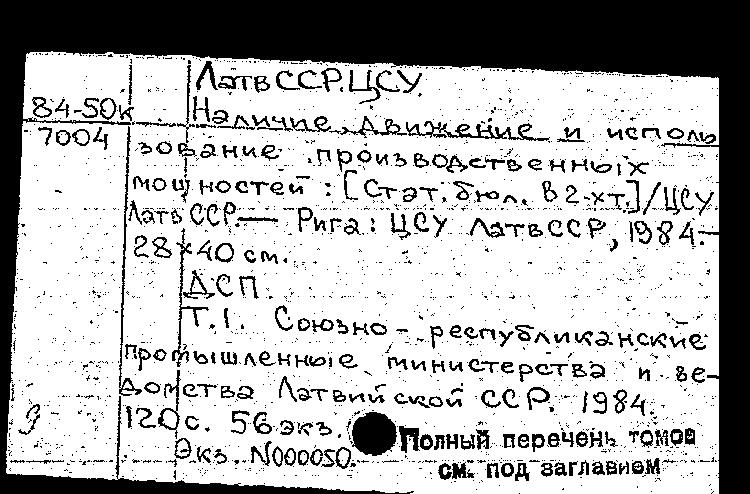 ЛатвССР.ЦСУ.
84-50к
7004
Наличие, движение и исполь
зование производственных
мощностей: [Стат. бюл. в 2-хт.]/ЦСУ
ЛатвССР.— Рига: ЦСУ ЛатвССР, 1984.-
28×40 см.
ДСП.
Т.1. Союзно-республиканские
промышленные министерства и ве-
домства Латвийской ССР. 1984.
120с. 56 экз.
Экз. N000050.
Полный перечень томов
см. под заглавием